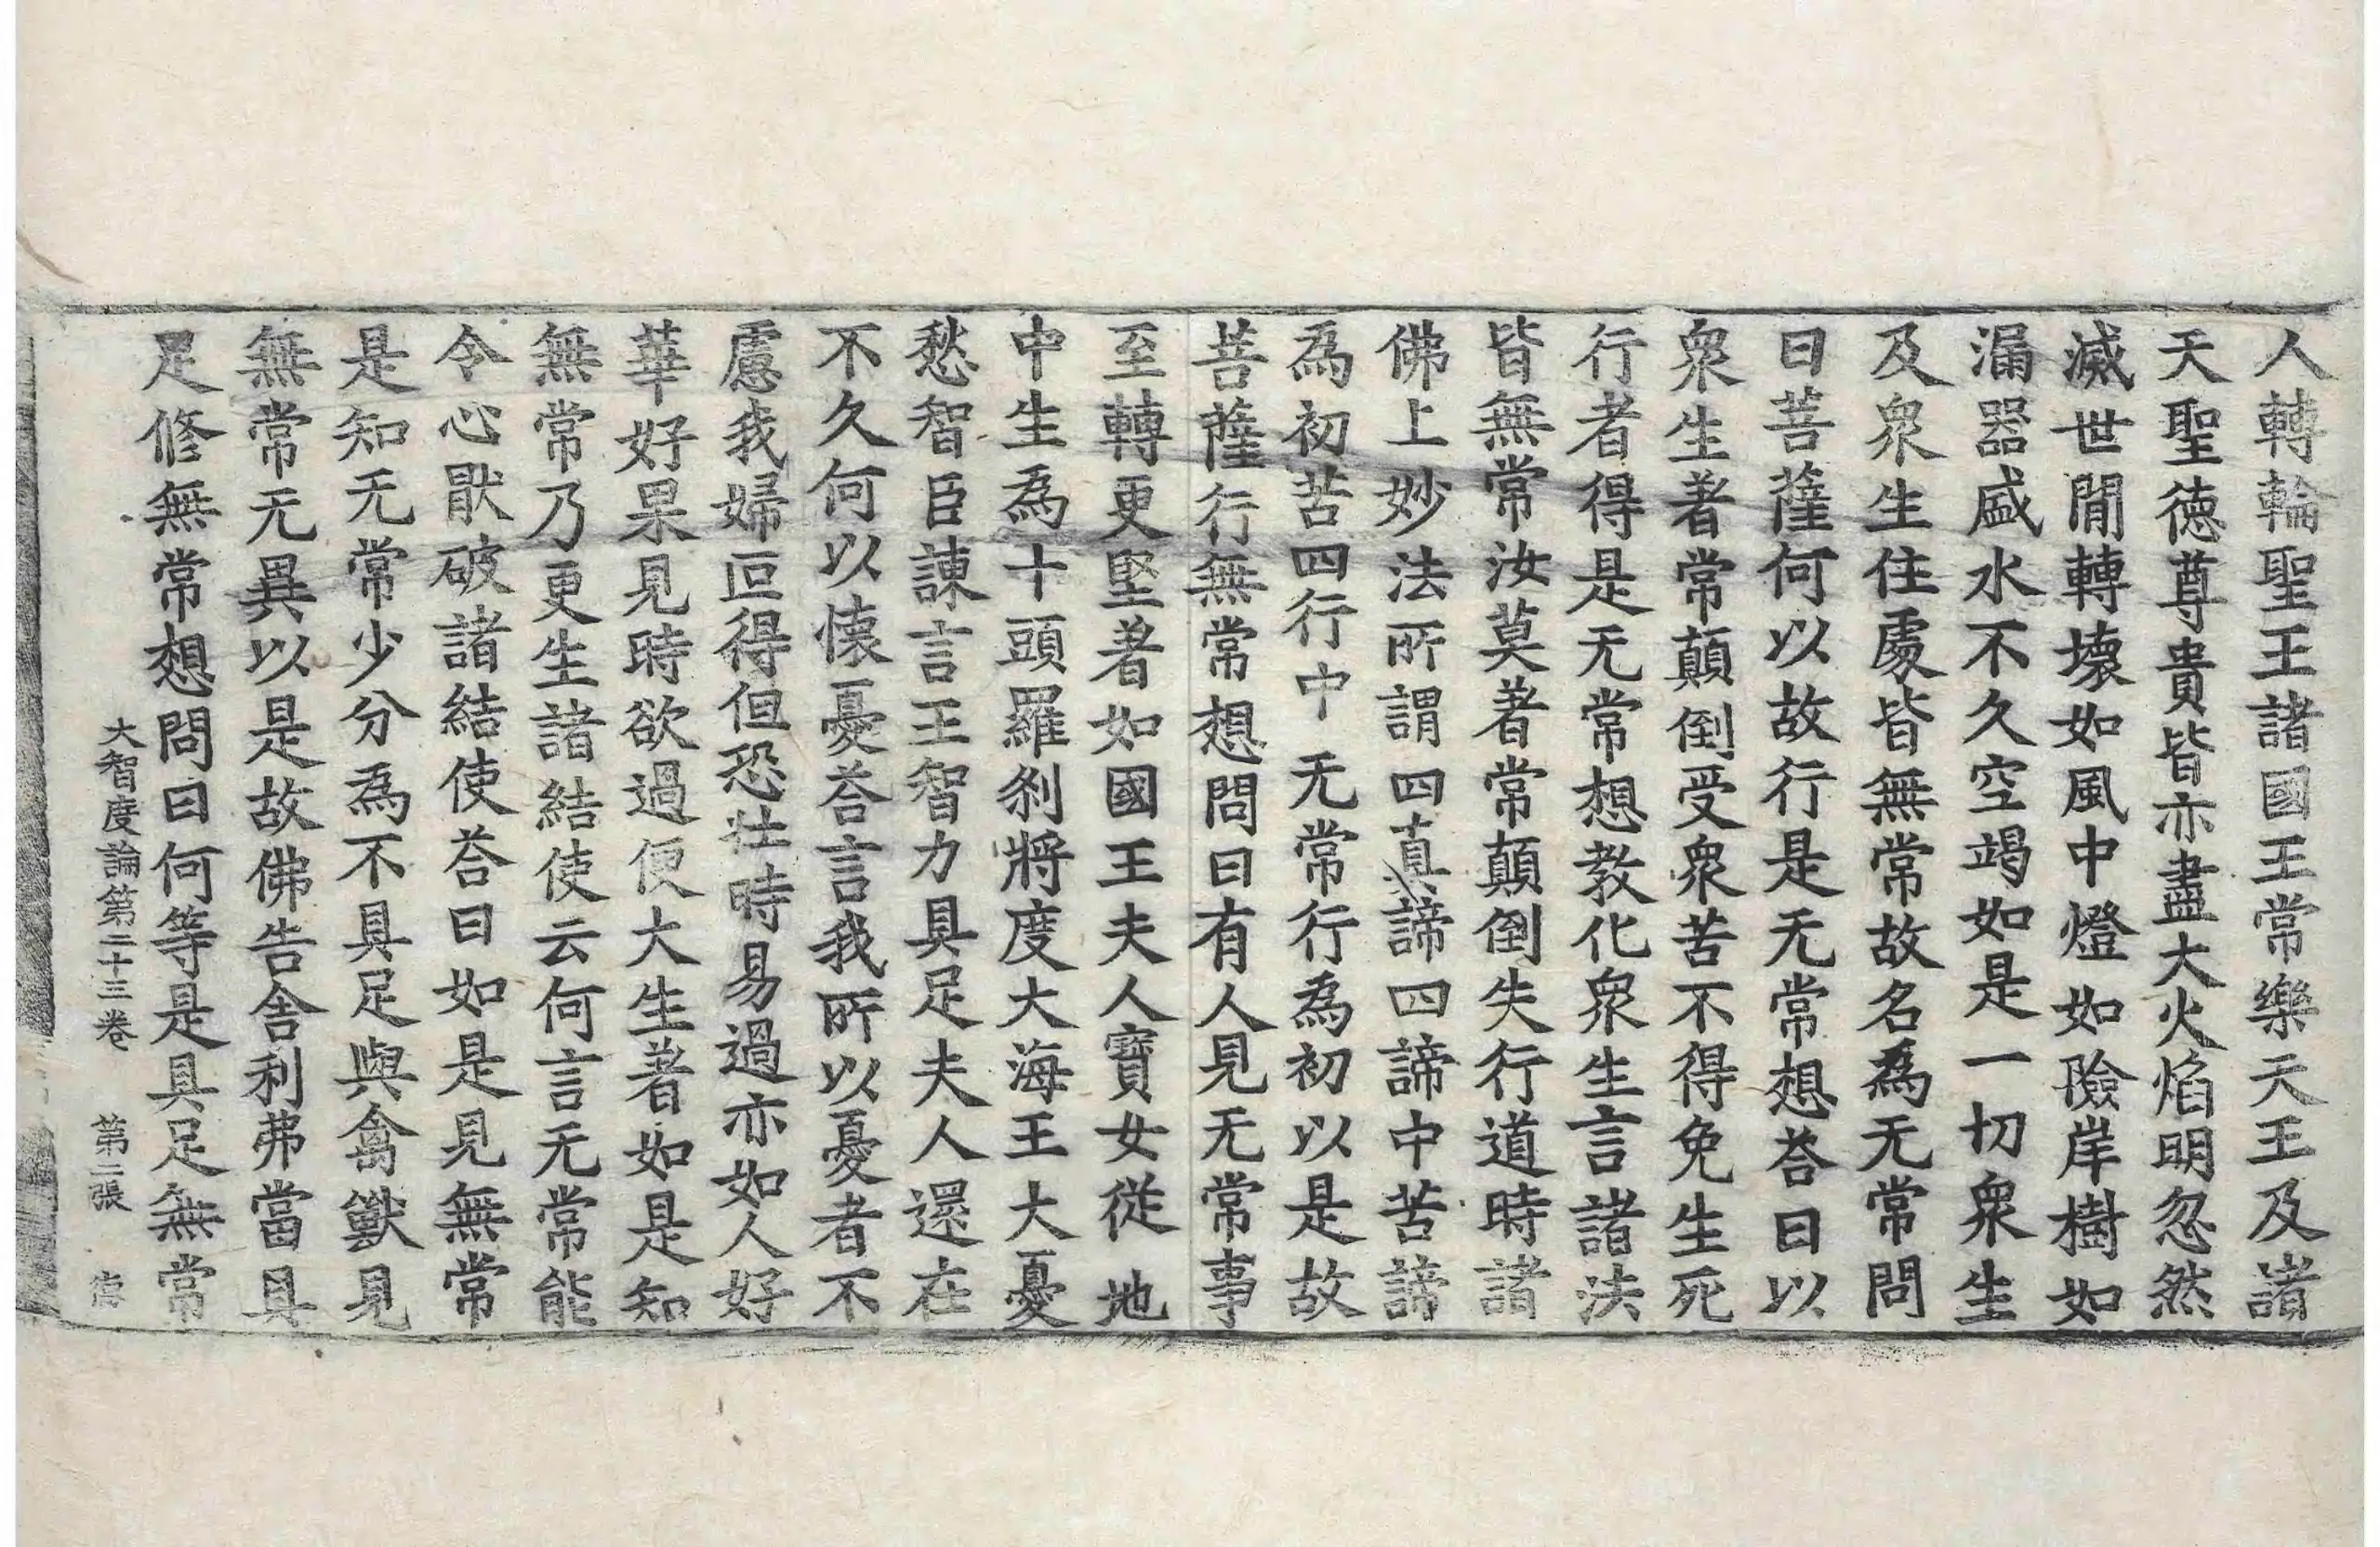 人轉輪聖王諸國王常樂天王及諸
天聖德尊貴皆亦盡大火焰明忽然
滅世閒轉壞如風中燈如險岸樹如
漏器盛水不久空竭如是一切衆生
及衆生住處皆無常故名爲无常問
曰菩薩何以故行是无常想荅曰以
衆生著常顛倒受衆苦不得免生死
行者得是无常想教化衆生言諸法
皆無常汝莫著常顛倒失行道時諸
佛上妙法所謂四真諦四諦中苦諦
爲初苦四行中无常行爲初以是故
菩薩行無常想問曰有人見无常事
至轉更堅著如國王夫人寶女從地
中生爲十頭羅剎將度大海王大憂
愁智臣諫言王智力具足夫人還在
不久何以懷憂荅言我所以憂者不
慮我婦叵得但恐壯時易過亦如人好
華好果見時欲過便大生著如是知
無常乃更生諸結使云何言无常能
令心猒破諸結使荅曰如是見無常
是知无常少分爲不具足與禽獸見
無常无異以是故佛告舍利弗當具
足修無常想問曰何等是具足無常
大智度論第二十三卷 第二張